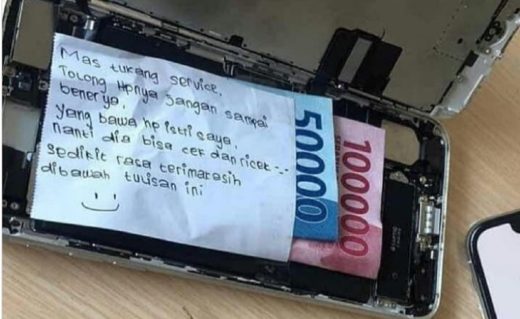 Mas tukang service,
Tolong Hpnya Jangan sampai
bener ya,
Yang bawa hp istri saya,
nanti dia bisa cek dan ricek --
Sedikit rasa terimarasih
dibawah tulisan ini
50000
100000